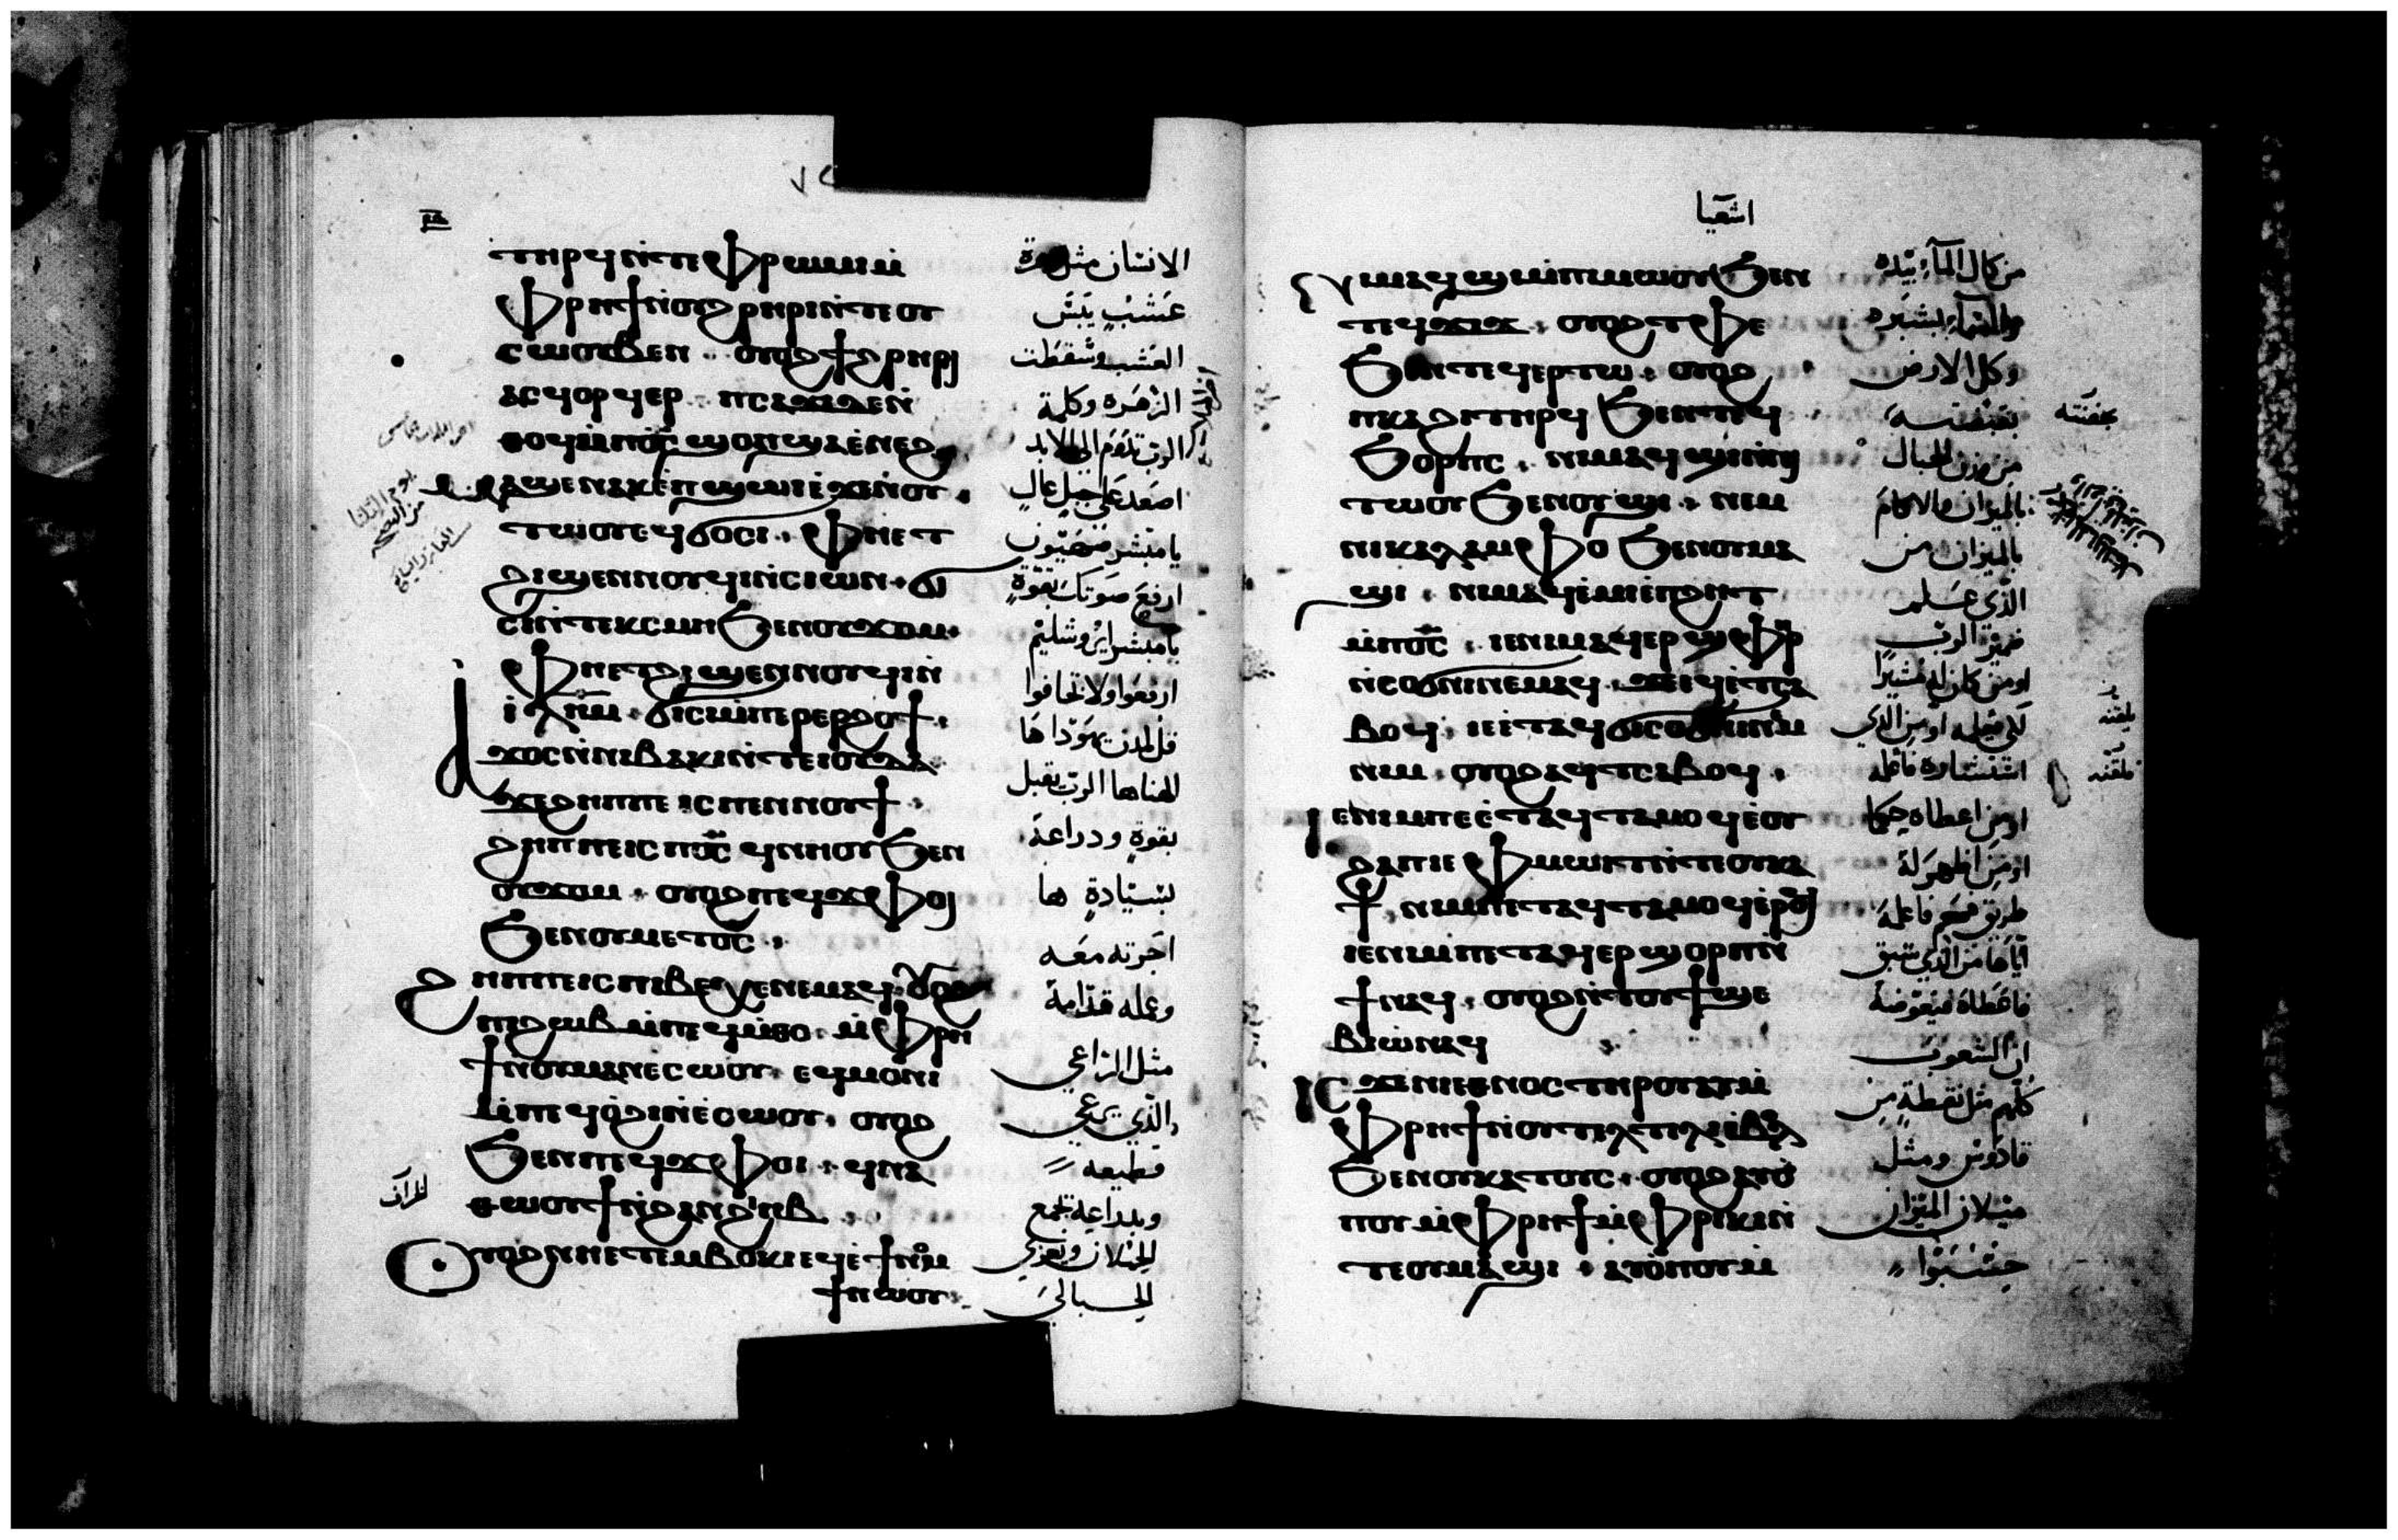 ⲧⲏⲣϥ ⲛ̇ⲧⲉ ⲫⲣⲱⲙⲓ ⲙ̇
ⲫⲣⲏϯ ⲛ̇ⲟⲩϩⲣⲏⲣⲓ ⲛ̇ⲧⲉ ⲟⲩ
ⲥⲱⲟⲩⲃⲉⲛ . ⲟⲩⲟϩ ϯϩⲣⲏⲣⲓ
ⲁⲥϥⲟⲣϥⲉⲣ . ⲡⲥⲁϫⲓ ⲇⲉ ⲛ̇
ⲑⲟϥ ⲙ̇ⲡϭ̅ⲥ̅ ϣⲟⲡ ϣⲁ ⲉ̇ⲛⲉϩ
ⲁϣⲉ ⲛⲁⲕ ⲉ̇ⲡϣⲱⲓ ⲉ̇ϫⲉⲛ ⲟⲩ
ⲧⲱⲟⲩ ⲉϥϭⲟⲥⲓ . ⲫⲏⲉⲧ
ϩⲓϣⲉⲛⲛⲟⲩϥⲓ ⲛ̇ⲥⲓⲱⲛ . ϭⲓ
ⲥⲓ ⲛ̇ⲧⲉⲕⲥⲙⲏ ϧⲉⲛ ⲟⲩϫⲟⲙ .
ⲫⲏⲉⲧϩⲓϣⲉⲛⲛⲟⲩϥⲓ ⲛ̇
ⲓ̇ⲗ̅ⲏ̅ⲙ̅ . ϭⲓⲥⲓ ⲙ̇ⲡⲉⲣⲉⲣϩⲟϯ .
ⲁϫⲟⲥ ⲛ̇ⲛⲓⲃⲁⲕⲓ ⲛ̇ⲧⲉ ⲓⲟⲩⲇⲁ
ϫⲉ ϩⲏⲡⲡⲉ ⲓⲥ ⲡⲉⲛⲛⲟⲩϯ .
ϩⲏⲡⲡⲉ ⲓⲥ ⲡϭ̅ⲥ̅ ϥⲛⲏⲟⲩ ϧⲉⲛ
ⲟⲩϫⲟⲙ . ⲟⲩⲟϩ ⲡⲉϥϫⲫⲟⲓ
ϧⲉⲛ ⲟⲩⲙⲉⲧϭ̅ⲥ̅ .
ϩⲏⲡⲡⲉ ⲓⲥ ⲡⲓⲃⲉⲭⲉ ⲛⲉⲙⲁϥ . ⲟⲩⲟϩ
ⲡϩⲱⲃ ⲙ̇ⲡⲉϥⲙ̇ⲑⲟ . ⲙ̇ⲫⲣⲏ
ϯ ⲛ̇ⲟⲩⲙⲁⲛⲉ̇ⲥⲱⲟⲩ ⲉϥⲙⲟⲛⲓ
ⲙ̇ⲡⲉϥⲟ̇ϩⲓ ⲛ̇ⲉ̇ⲥⲱⲟⲩ . ⲟⲩⲟϩ
ϧⲉⲛ ⲡⲉϥϫⲫⲟⲓ . ϥⲛⲁ
ⲑⲱⲟⲩϯ ⲛ̇ϩⲁⲛϩⲓⲏⲃ .
ⲟⲩⲟϩ ⲛⲏⲉⲧⲉⲙⲃⲟⲕⲓ ⲉϥⲉ̇ϯⲛⲟⲙ
ϯ ⲛⲱⲟⲩ .
الانسان مثل زهرة
عشب يبس
العشب وسقطت
الزهره وكلمة
الرب تدوم الى الابد
اصعد على جبل عال
يا مبشر صهيون
ارفع صوتك بقوة
يا مبشر ايروشليم
ارفعوا ولا تخافوا
قل لمدن يهوذا ها
الهنا ها الرب يقبل
بقوة ودراعة
بسيادة ها
اجرته معه
وعمله قدامة
مثل الراعي
الذي يرعي
قطيعه
وبدراعه تجمع
الحملان ويعزي
الحبالى
اشعيا
ⲛⲓⲙ ⲁϥϣⲓ ⲙ̇ⲡⲓⲙⲱⲟⲩ ϧⲉⲛ
ⲧⲉϥϫⲓϫ . ⲟⲩⲟϩ ⲧⲫⲉ
ϧⲉⲛ ⲧⲉϥⲉⲣⲧⲱ . ⲟⲩⲟϩ
ⲡⲕⲁϩⲓ ⲧⲏⲣϥ ϧⲉⲛ ⲧⲉϥ
ϭⲟⲣⲡⲥ . ⲛⲓⲙ ⲁϥϣⲓ ⲛ̇ⲛⲓ
ⲧⲱⲟⲩ ϧⲉⲛ ⲟⲩϣⲓ . ⲛⲉⲙ
ⲛⲓⲕⲁⲗⲁⲙⲫⲟ ϧⲉⲛ ⲟⲩⲙⲁ
ϣⲓ . ⲛⲓⲙ ⲁϥⲉ̇ⲙⲓ ⲉ̇ⲡϩⲏⲧ
ⲙ̇ⲡϭ̅ⲥ̅ . ⲓⲉ ⲛⲓⲙ ⲁϥⲉⲣϣⲫⲏⲣ
ⲛ̇ⲥⲟϭⲛⲓ ⲛⲉⲙⲁϥ . ϫⲉ ⲉϥⲉ̇ⲧⲥⲁ
ⲃⲟϥ . ⲓⲉ ⲉⲧⲁϥϭⲓⲥⲟϭⲛⲓ ⲛⲉⲙ
ⲛⲓⲙ . ⲟⲩⲟϩ ⲁϥⲧⲥⲁⲃⲟϥ .
ⲓⲉ ⲛⲓⲙ ⲡⲉ ⲉ̇ⲧⲁϥⲧⲁⲙⲟϥ ⲉ̇ⲟⲩ
ϩⲁⲡ ⲓⲉ ⲫⲙⲱⲓⲧ ⲛ̇ⲧⲉ ⲟⲩⲕⲁ
ϯ . ⲛⲓⲙ ⲡⲉⲧⲁϥⲧⲁⲙⲟϥ ⲉ̇ⲣⲟϥ
ⲓⲉ ⲛⲓⲙ ⲡⲉⲧⲁϥⲉⲣϣⲟⲣⲡ ⲛ̇
ϯ ⲛⲁϥ . ⲟⲩⲟϩ ⲛ̇ⲧⲟⲩϯϣⲉ
ⲃⲓⲱ̇ ⲛⲁϥ
ⲓⲥϫⲉ ⲛⲓⲉⲑⲛⲟⲥ ⲧⲏⲣⲟⲩ ⲁⲩ ⲙ̇
ⲫⲣⲏϯ ⲛ̇ⲟⲩⲧⲉⲗⲧⲓⲗⲓ ⲉⲃⲟⲗ
ϧⲉⲛ ⲟⲩⲕⲁⲧⲟⲩⲥ . ⲟⲩⲟϩ ⲁⲩⲟ̇
ⲡⲟⲩ ⲙ̇ⲫⲣⲏϯ ⲙ̇ⲫⲣⲓⲕⲓ ⲛ̇
ⲧⲉ ⲟⲩⲙⲁϣⲓ . ⲁⲩⲟ̇ⲡⲟⲩ ⲙ̇
من كال الماء بيده
والسماء بشبره
وكل الارض
بقبضته
من وزن الجبال
بالميزان والاكام
بالميزان من
الذي علم
ضمير الرب
او من كان له مشيرا
لكي يعلمه او من الذي
استشاره فاعلمه
او من اعطاه حكما
او من اظهر له
طريق فهم فاعلمه
اياها من الذي سبق
فاعطاه فيعوضه
ان الشعوب
كلهم مثل نقطة من
قادوس ومثل
ميلان الميزان
حسبوا